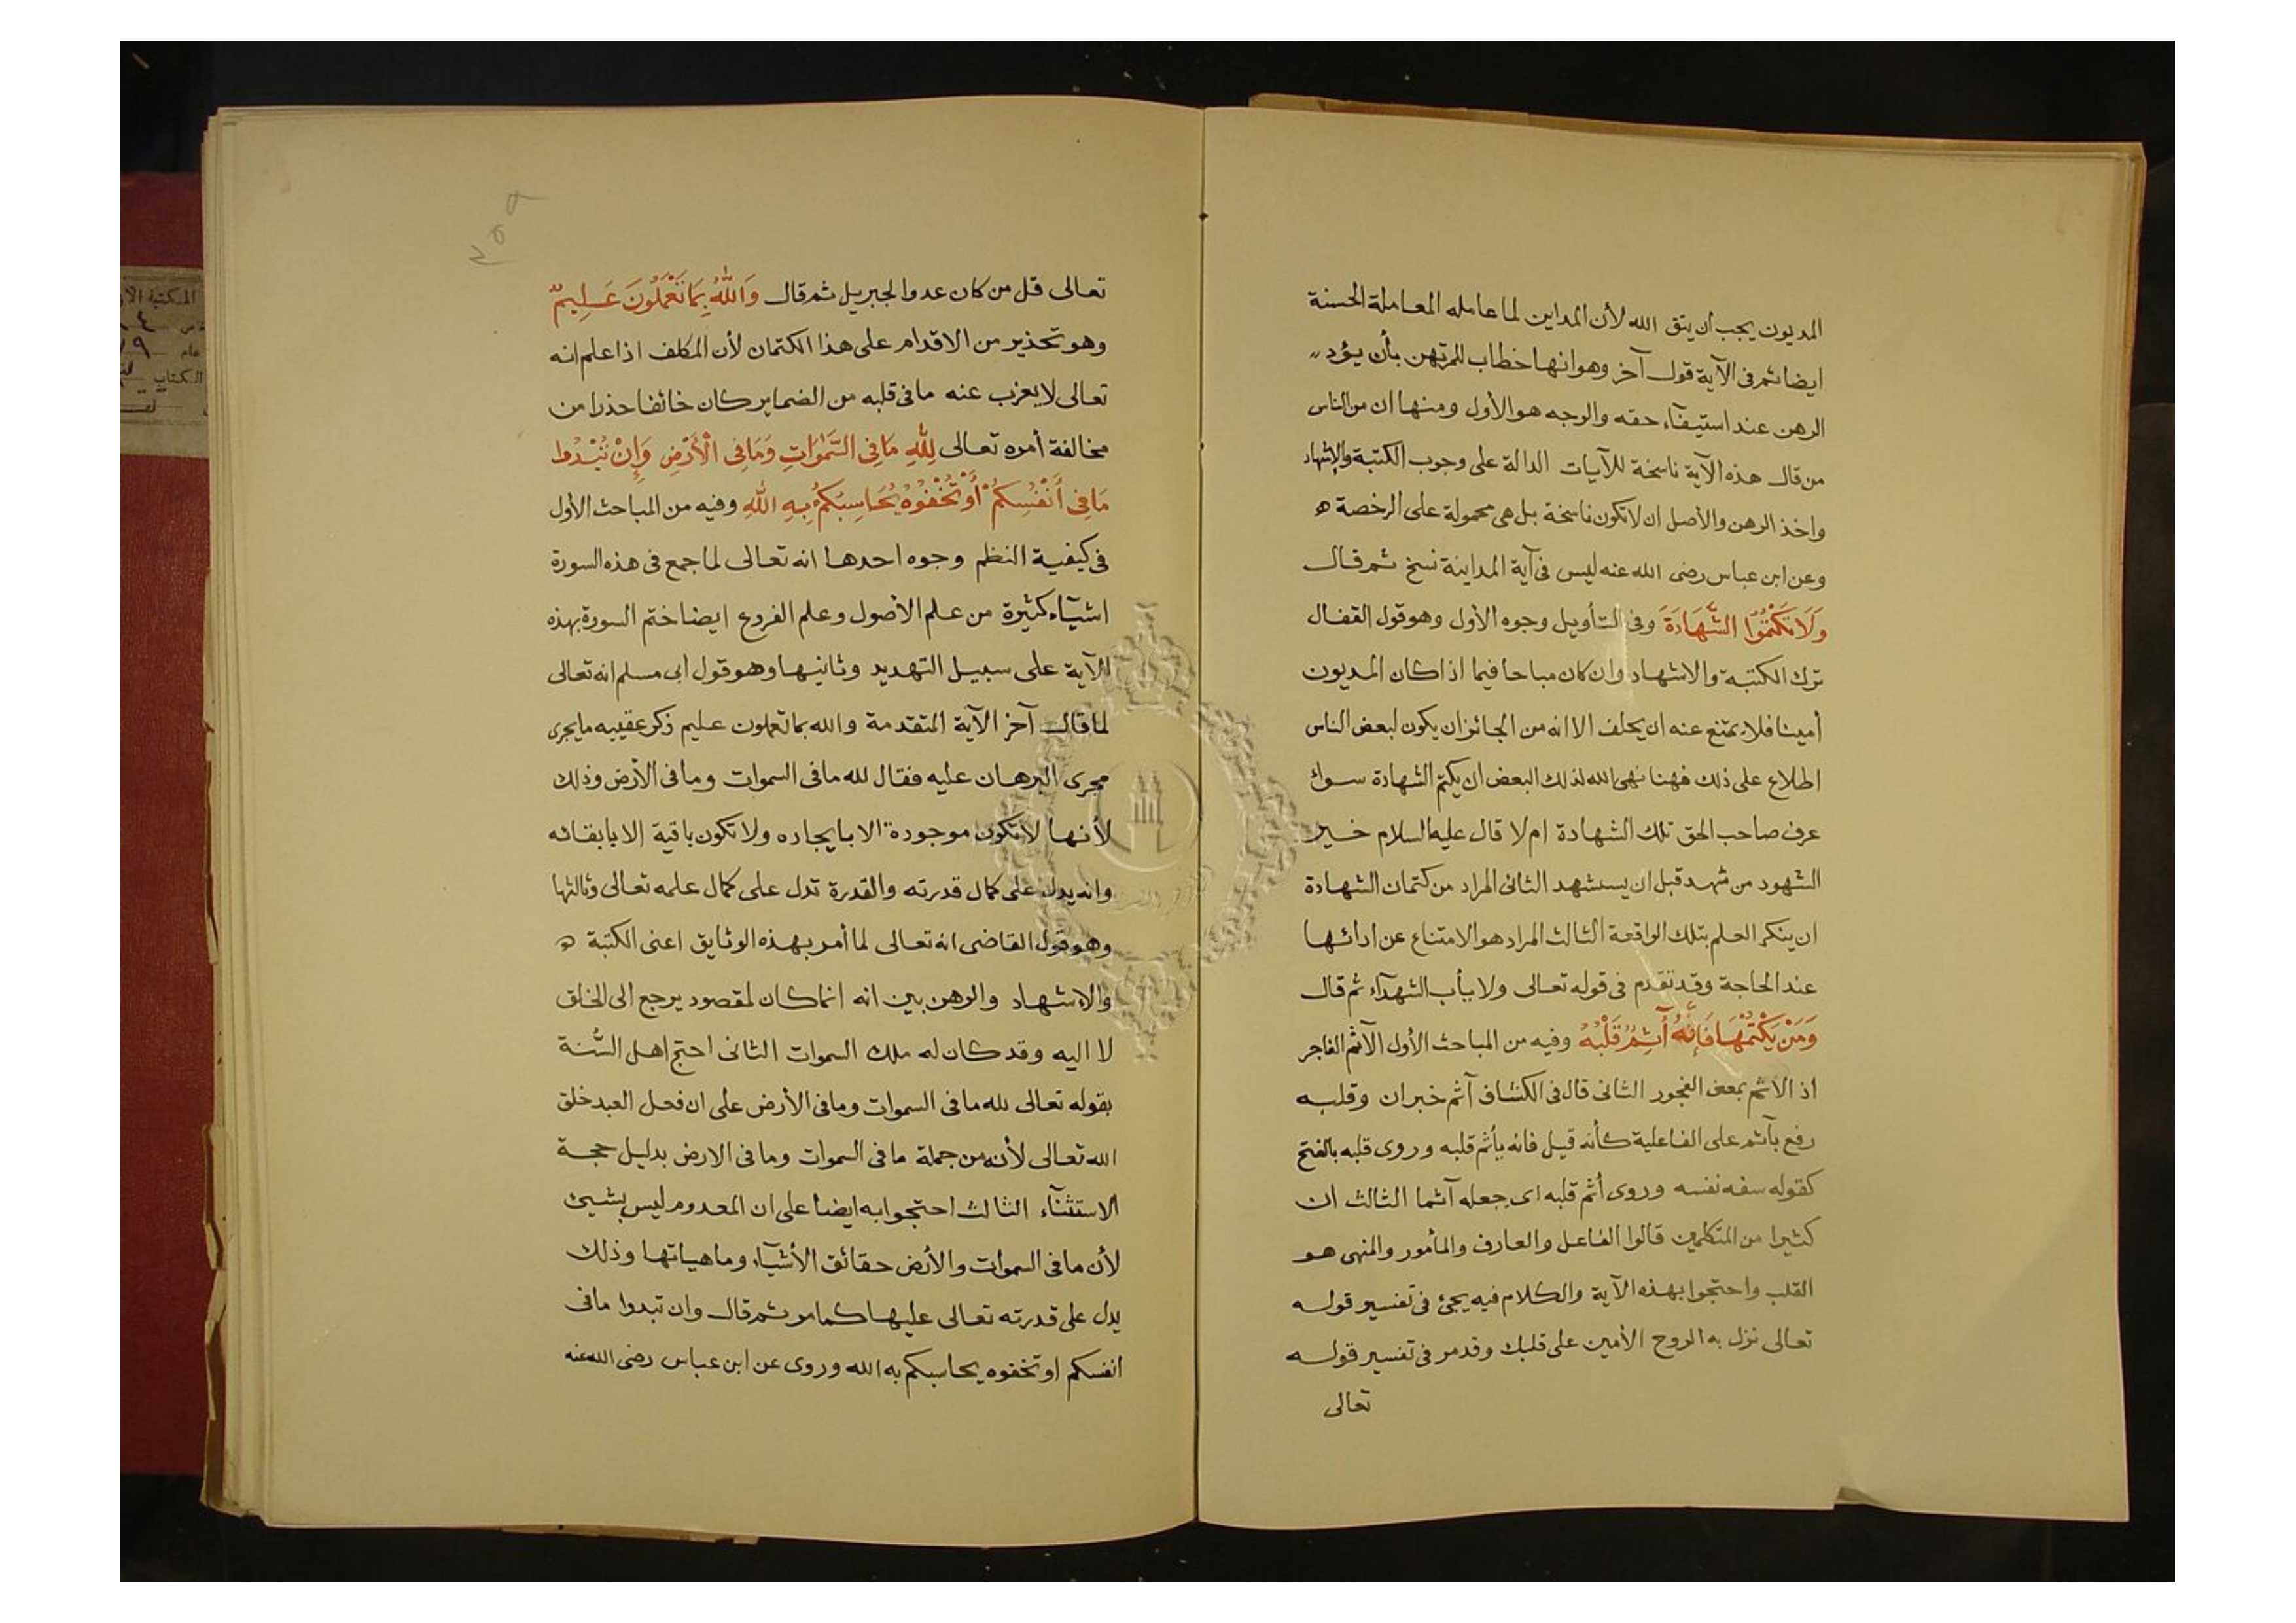 المديون يجب أن يتق الله لأن المداين لما عامله المعاملة الحسنة
ايضا ثم في الآية قول آخر وهو انها خطاب للمرتهن بأن يؤد
الرهن عند استيفآء حقه والوجه هو الأول ومنها ان من الناس
من قال هذه الآية ناسخة للآيات الدالة على وجوب الكتبة والإشهاد
واخذ الرهن والأصل ان لا تكون ناسخة بل هي محمولة على الرخصة ه
وعن ابن عباس رضى الله عنه ليس فى آية المداينة نسخ ثم قال
وَلَا تَكْتُمُوا الشَّهَادَةَ وفى التأويل وجوه الأول وهو قول القفال
ترك الكتبة والاشهاد وان كان مباحا فيما اذا كان المديون
أمينا فلا يمتنع عنه ان يحلف الا انه من الجائز ان يكون لبعض الناس
اطلاع على ذلك فههنا نهى الله لذلك البعض ان يكتم الشهادة سواء
عرف صاحب الحق تلك الشهادة ام لا قال عليه السلام خير
الشهود من شهد قبل ان يستشهد الثانى المراد من كتمان الشهادة
ان ينكر العلم بتلك الواقعة الثالث المراد هو الامتناع عن ادائها
عند الحاجة وقد تقدم فى قوله تعالى ولا يأب الشهدآء ثم قال
وَمَنْ يَكْتُمْهَا فَإِنَّهُ آثِمٌ قَلْبُهُ وفيه من المباحث الأول الآثم الفاجر
اذ الاثم بمعنى الفجور الثانى قال فى الكشاف آثم خبر ان وقلبه
رفع بآثم على الفاعلية كأنه قيل فانه يأثم قلبه وروى قلبه بالفتح
كقوله سفه نفسه وروى أثم قلبه اى جعله آثما الثالث ان
كثيرا من المتكلمين قالوا الفاعل والعارف والمأمور والمنهى هو
القلب واحتجوا بهذه الآية والكلام فيه يجئ فى تفسير قوله
تعالى نزل به الروح الأمين على قلبك وقد مر فى تفسير قوله
تعالى
٢٥٩
تعالى قل من كان عدوا لجبريل ثم قال وَاللهُ بِمَا تَعْمَلُونَ عَلِيمٌ
وهو تحذير من الاقدام على هذا الكتمان لأن المكلف اذا علم انه
تعالى لا يعزب عنه ما فى قلبه من الضماير كان خائفا حذرا من
مخالفة أمره تعالى لِلهِ مَا فِى السَّمٰوَاتِ وَمَا فِى الْأَرْضِ وَإِنْ تُبْدُوا
مَا فِى أَنْفُسِكُمْ أَوْ تُخْفُوهُ يُحَاسِبْكُمْ بِهِ اللهُ وفيه من المباحث الأول
فى كيفية النظم وجوه احدها انه تعالى لما جمع فى هذه السورة
اشيآء كثيرة من علم الأصول وعلم الفروع ايضا ختم السورة بهذه
الآية على سبيل التهديد وثانيها وهو قول أبى مسلم انه تعالى
لما قال آخر الآية المتقدمة والله بما تعملون عليم ذكر عقيبه ما يجرى
مجرى البرهان عليه فقال لله ما فى السموات وما فى الأرض وذلك
لأنها لا تكون موجودة الا بايجاده ولا تكون باقية الا بابقائه
وانه يدل على كمال قدرته والقدرة تدل على كمال علمه تعالى وثالثها
وهو قول القاضى انه تعالى لما أمر بهذه الوثايق اعنى الكتبة ه
والاشهاد والرهن بين انه انما كان لمقصود يرجع الى الخلق
لا اليه وقد كان له ملك السموات الثانى احتج اهل السُّنة
بقوله تعالى لله ما فى السموات وما فى الأرض على ان فعل العبد خلق
الله تعالى لأنه من جملة ما فى السموات وما فى الارض بدليل حجة
الاستثنآء الثالث احتجوا به ايضا على ان المعدوم ليس بشيئ
لأن ما فى السموات والأرض حقائق الأشيآء وماهياتها وذلك
يدل على قدرته تعالى عليها كما مر ثم قال وان تبدوا ما فى
انفسكم او تخفوه يحاسبكم به الله وروى عن ابن عباس رضى الله عنه